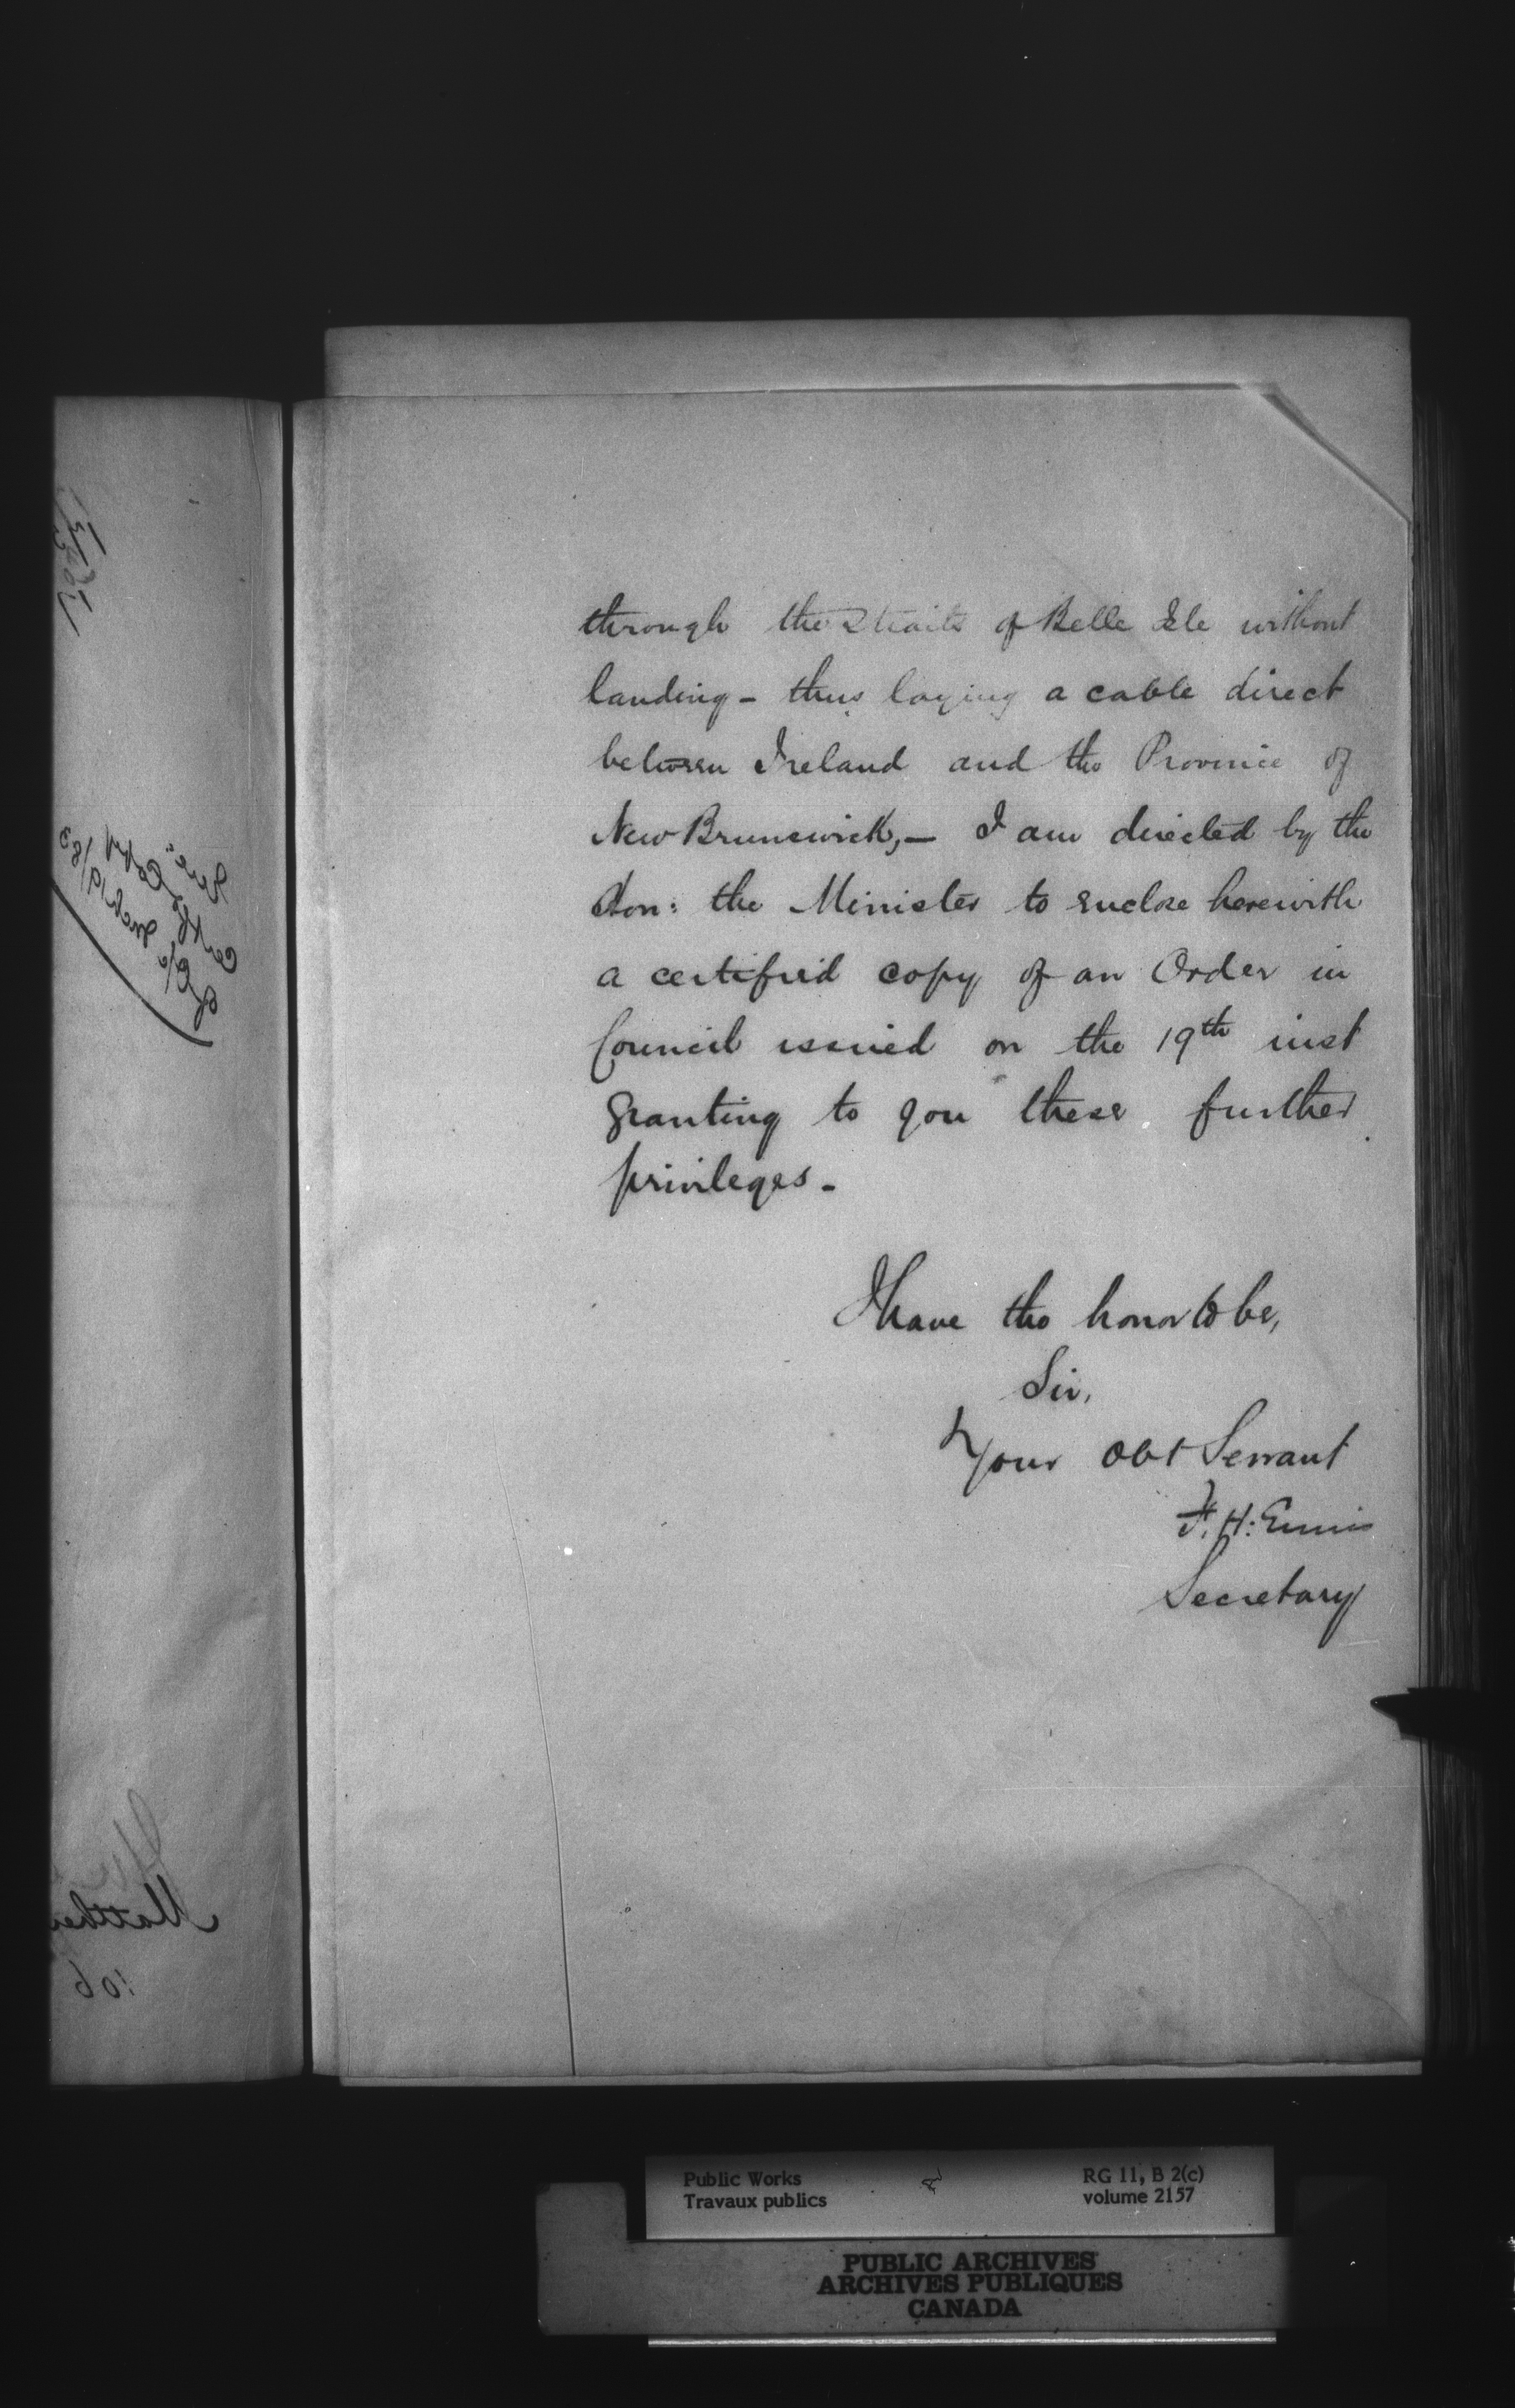 through the Straits of Belle Isle without
landing - thus laying a cable direct
between Ireland and the Province of
New Brunswick, - I am directed by the
Hon: the Minister to enclose herewith
a certified copy of an Order in
Council issued on the 19th inst
granting to you these further
privileges -
I have the honor to be,
Sir,
Your Obt Servant
F. H. Ennis
Secretary
Public Works
Travaux publics
RG 11, B 2(c)
volume 2157
PUBLIC ARCHIVES
ARCHIVES PUBLIQUES
CANADA